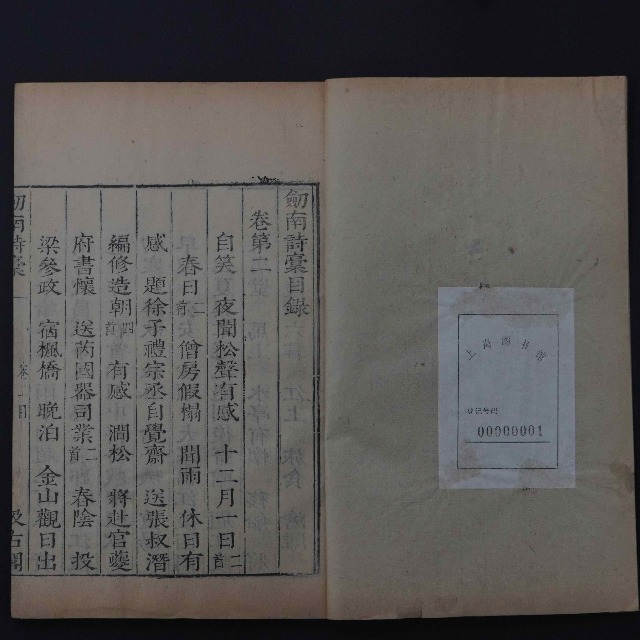 劒南詩槀目録
卷第二
自笑 夜聞松聲有感 十二月一日二首
春日二首 僧房假榻 聞雨 休日有
感 題徐子禮宗丞自覺齋 送張叔潛
編修造朝四首 有感 澗松 將赴官夔
府書懷 送芮國器司業二首 春陰 投
梁參政 宿楓橋 晚泊 金山觀日出
劒南詩槀
汲古閣
00000001